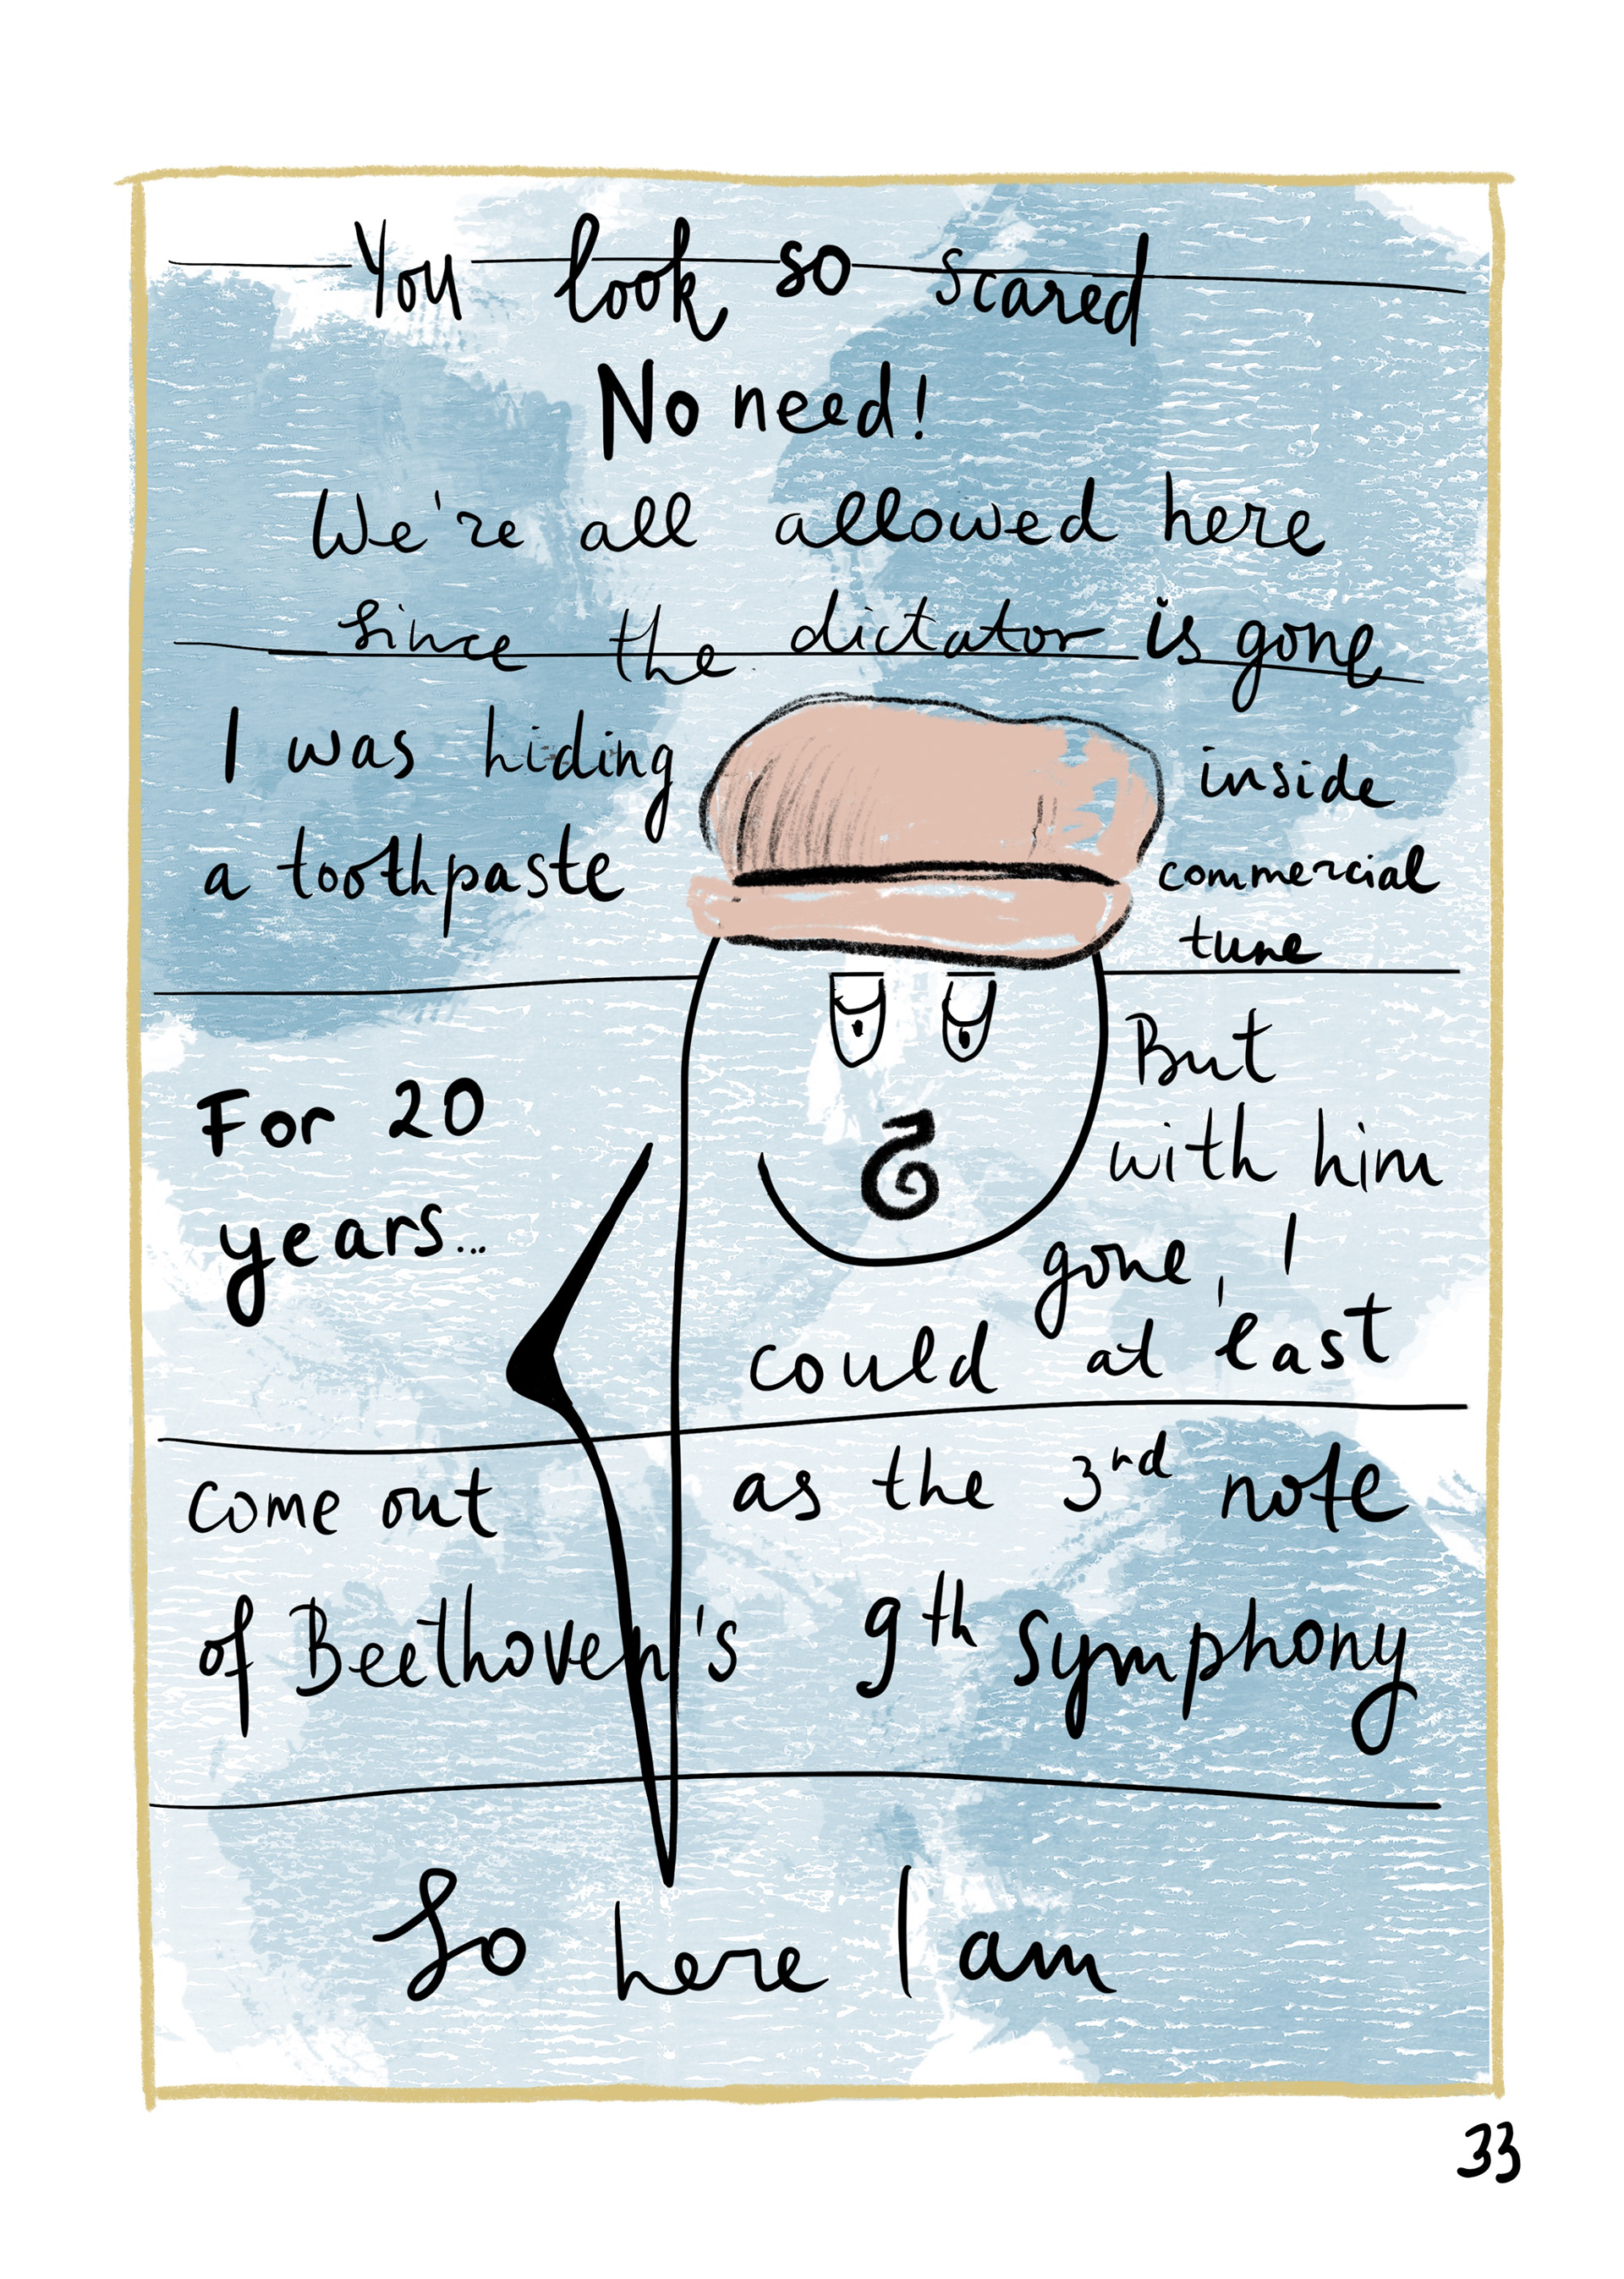 You look so scared
No need!
We're all allowed here
since the dictator is gone
I was hiding inside
a toothpaste commercial
tune
For 20
years...
But
with him
gone, I
could at last
come out as the 3rd note
of Beethoven's 9th symphony
So here I am
33